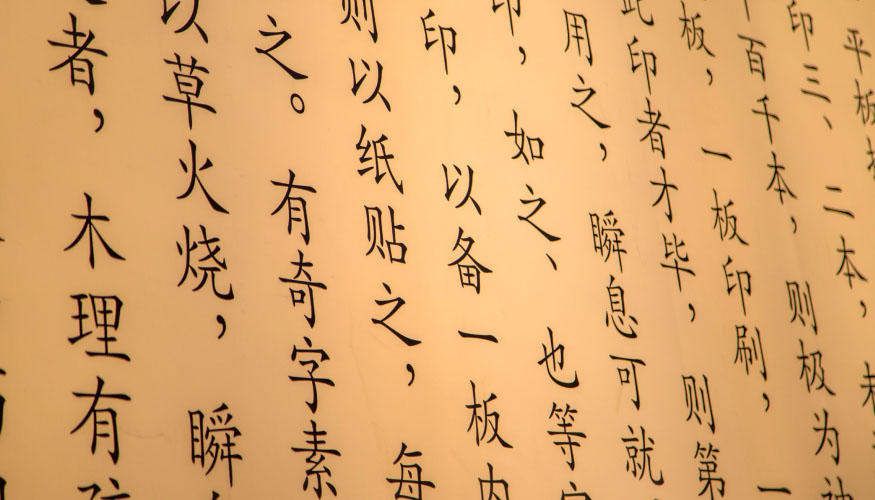 平板
印三、二本，
百千本，则极为神
板，一板印刷，一
此印者才毕，则第
用之，瞬息可就
印，如之、也等字
印，以备一板内
则以纸贴之，每
之。有奇字素
以草火烧，瞬
者，木理有疏